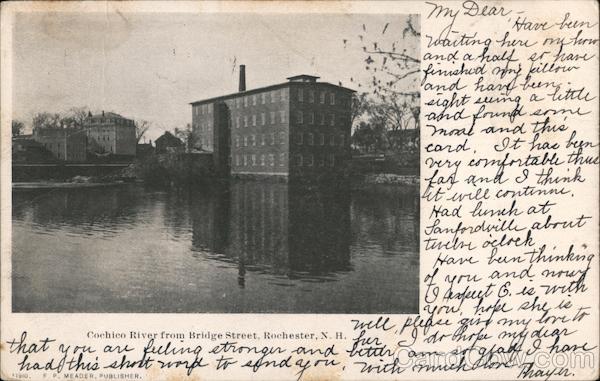 My Dear - Have been
waiting here one hour
and a half so have
finished my pillow
and have been
sight seeing a little
and found some
moss and this
card. It has been
very comfortable thus
far and I think
it will continue.
Had lunch at
Sanfordville about
twelve o'clock
Have been thinking
of you and now
I expect E. is with
you, hope she is
well, please give my love to
Cochico River from Bridge Street, Rochester, N. H.
her, I do hope my dear
that you are feeling stronger and better, and so glad I have
had this short word to send you, with much love
Thayer.
F. P. MEADER, PUBLISHER.
CardCow.com